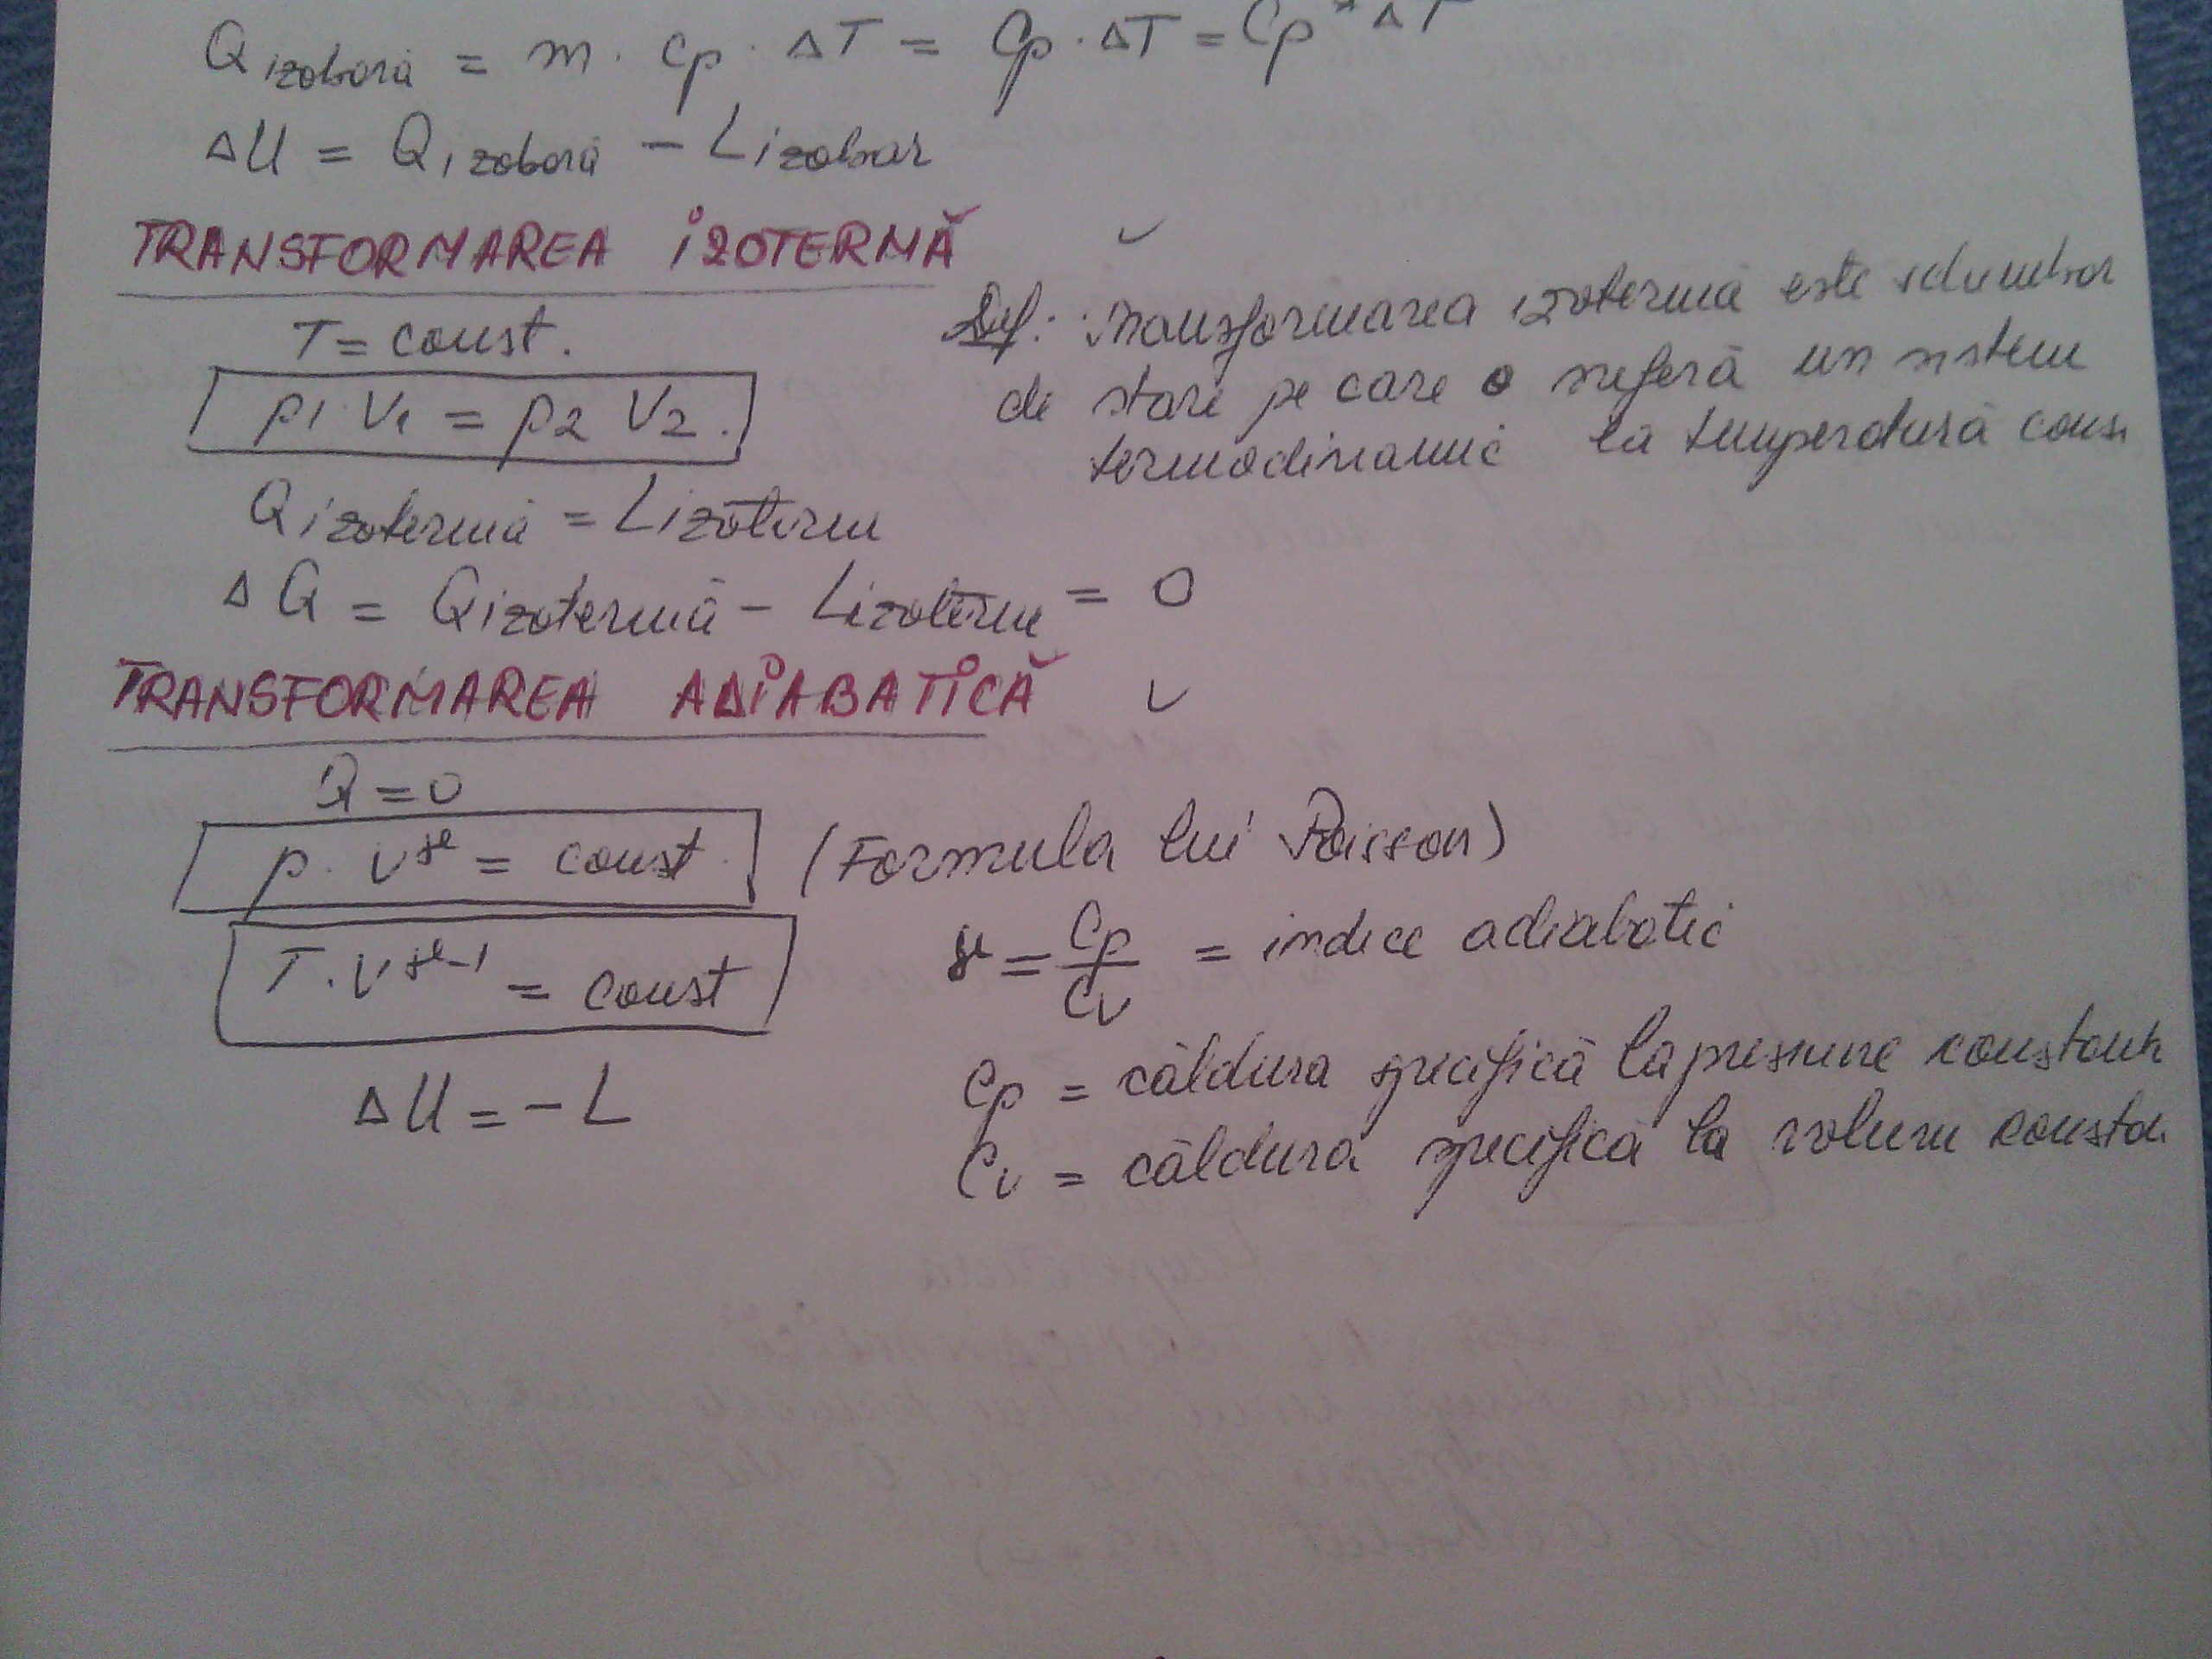 Q izobară = m · cp · ΔT = Cp · ΔT = Cp * ΔT
ΔU = Q izobară − L izobar
TRANSFORMAREA IZOTERMĂ
T = const.
p1 V1 = p2 V2.
Def: Transformarea izotermă este schimbar
de stare pe care o suferă un sistem
termodinamic la temperatură cons
Q izotermă = L izoterm
ΔQ = Q izotermă − L izoterm = 0
TRANSFORMAREA ADIABATICĂ
Q = 0
p · V^γ = const. (Formula lui Poisson)
T · V^γ-1 = const
γ = Cp / Cv = indice adiabatic
ΔU = − L
Cp = căldura specifică la presiune constant
Cv = căldura specifică la volum consta